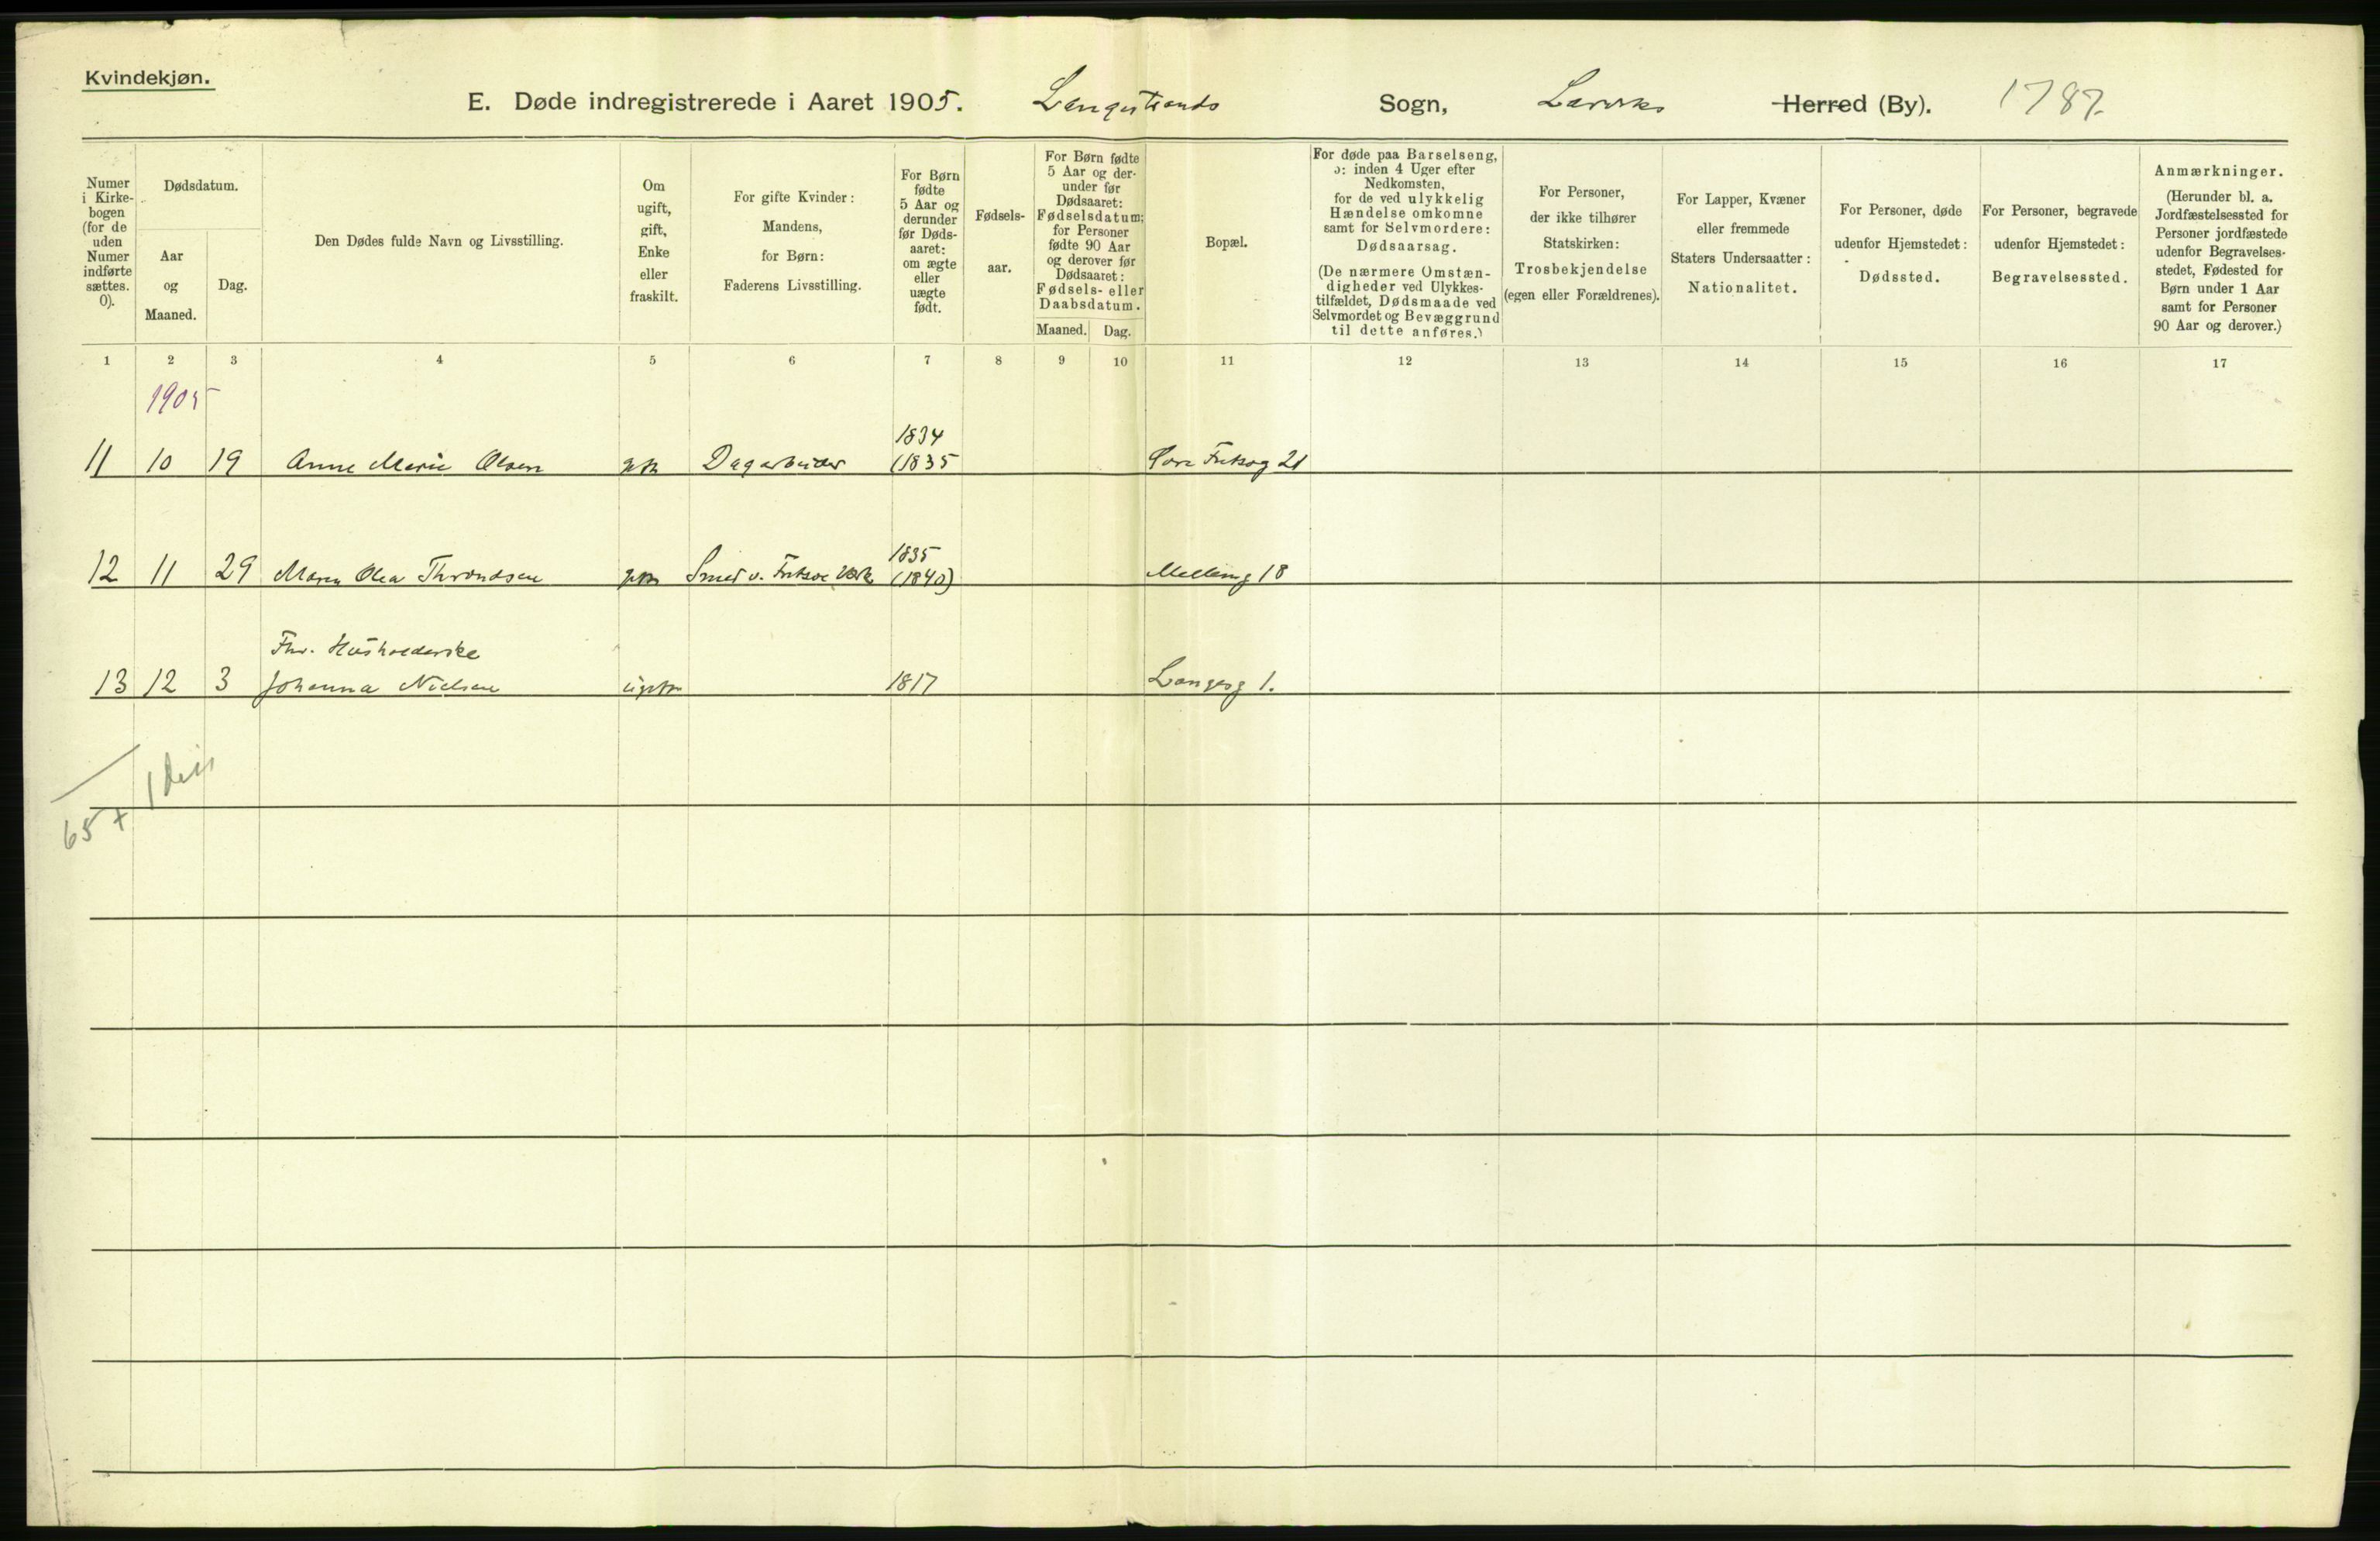 Kvindekjøn.
E. Døde indregistrerede i Aaret 1905. Langestrands Sogn, Larviks Herred (By). 1787.
Numer
i Kirke-
bogen
(for de
uden
Numer
indførte
sættes.
0).
Dødsdatum.
Aar
og
Maaned.
Dag.
Den Dødes fulde Navn og Livsstilling.
Om
ugift,
gift,
Enke
eller
fraskilt.
For gifte Kvinder:
Mandens,
for Børn:
Faderens Livsstilling.
For Børn
fødte
5 Aar og
derunder
før Døds-
aaret:
om ægte
eller
uægte
født.
Fødsels-
aar.
For Børn fødte
5 Aar og der-
under før
Dødsaaret:
Fødselsdatum;
for Personer
fødte 90 Aar
og derover før
Dødsaaret:
Fødsels- eller
Daabsdatum.
Maaned. Dag.
Bopæl.
For døde paa Barselseng,
ɔ: inden 4 Uger efter
Nedkomsten,
for de ved ulykkelig
Hændelse omkomne
samt for Selvmordere:
Dødsaarsag.
(De nærmere Omstæn-
digheder ved Ulykkes-
tilfældet, Dødsmaade ved
Selvmordet og Bevæggrund
til dette anføres.)
For Personer,
der ikke tilhører
Statskirken:
Trosbekjendelse
(egen eller Forældrenes).
For Lapper, Kvæner
eller fremmede
Staters Undersaatter:
Nationalitet.
For Personer, døde
udenfor Hjemstedet:
Dødssted.
For Personer, begravede
udenfor Hjemstedet:
Begravelsessted.
Anmærkninger.
(Herunder bl. a.
Jordfæstelsessted for
Personer jordfæstede
udenfor Begravelses-
stedet, Fødested for
Børn under 1 Aar
samt for Personer
90 Aar og derover.)
1 2 3 4 5 6 7 8 9 10 11 12 13 14 15 16 17
1905
1834
11 10 19 Anne Marie Olsen gift Dagarbeider (1835 21
1835
12 11 29 Maren Olea Throndsen gift Smed v. Fritzøe Værk (1840) Melleng 18
Fhv. Husholderske
13 12 3 Johanna Nielsen ugift 1817 Langeg 1.
65 +